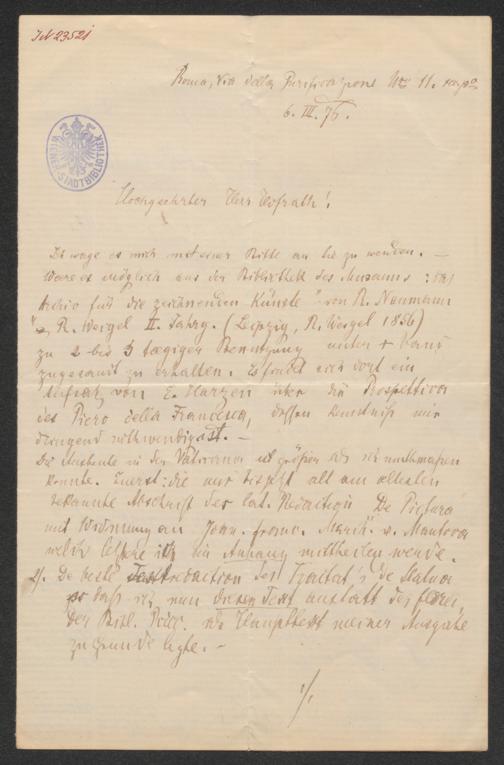 JN 23521
Roma, Via della Purificazione No 11.
6. III. 76.
WIENER STADTBIBLIOTHEK
Hochgeehrter Herr Hofrath!
Ich wage es mich mit einer Bitte an Sie zu wenden. —
Wäre es möglich aus der Bibliothek des Museums: "
Archiv für die zeichnenden Künste" von R. Naumann
R. Weigel II. Jahrg. (Leipzig, R. Weigel 1856)
zu 2 bis 3 tægiger Benutzung unter
zugesandt zu erhalten. Es findet sich dort ein
Aufsatz von E. Harzen über die Prospettiva
des Piero della Francesca, dessen Kenntniß mir
dringend nothwendig ist. —
Die Ausbeute in der Vaticana ist größer als ich muthmaßen
konnte. Zuerst: die mir bis jetzt als am ältesten
bekannte Abschrift der lat. Redaction De Pictura
mit Widmung an Joan. Franc. March. v. Mantova
welch letztere ich im Anhang mittheilen werde.
2). De beste Textredaction des Traitat's De Statua
so daß ich nun diesen Text anstatt des
der Bibl. Ricc. als Haupttext meiner Ausgabe
zu Grunde legte. —